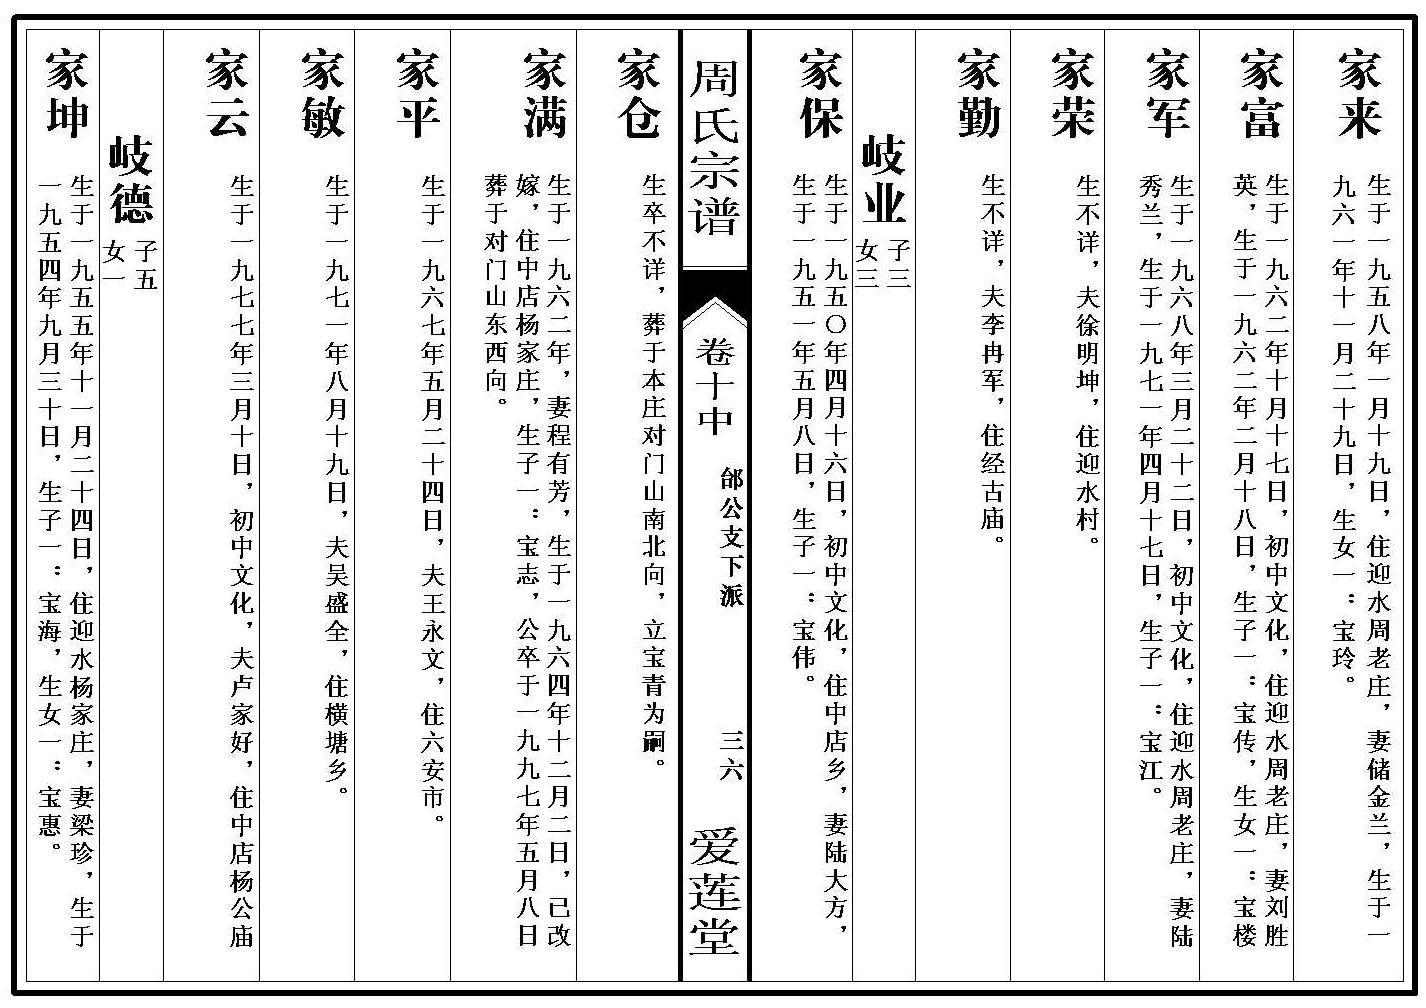 家来
生于一九五八年一月十九日，住迎水周老庄，妻储金兰，生于一
九六一年十一月二十九日，生女一：宝玲。
家富
生于一九六二年十月十七日，初中文化，住迎水周老庄，妻刘胜
英，生于一九六二年二月十八日，生子一：宝传，生女一：宝楼
家军
生于一九六八年三月二十二日，初中文化，住迎水周老庄，妻陆
秀兰，生于一九七一年四月十七日，生子一：宝江。
家荣
生不详，夫徐明坤，住迎水村。
家勤
生不详，夫李冉军，住经古庙。
岐业
子三
女三
家保
生于一九五〇年四月十六日，初中文化，住中店乡，妻陆大方，
生于一九五一年五月八日，生子一：宝伟。
周氏宗谱
卷十中
邰公支下派
三六
爱莲堂
家仓
生卒不详，葬于本庄对门山南北向，立宝青为嗣。
家满
生于一九六二年，妻程有芳，生于一九六四年十二月二日，已改
嫁，住中店杨家庄，生子一：宝志，公卒于一九九七年五月八日
葬于对门山东西向。
家平
生于一九六七年五月二十四日，夫王永文，住六安市。
家敏
生于一九七一年八月十九日，夫吴盛全，住横塘乡。
家云
生于一九七七年三月十日，初中文化，夫卢家好，住中店杨公庙
岐德
子五
女一
家坤
生于一九五五年十一月二十四日，住迎水杨家庄，妻梁珍，生于
一九五四年九月三十日，生子一：宝海，生女一：宝惠。